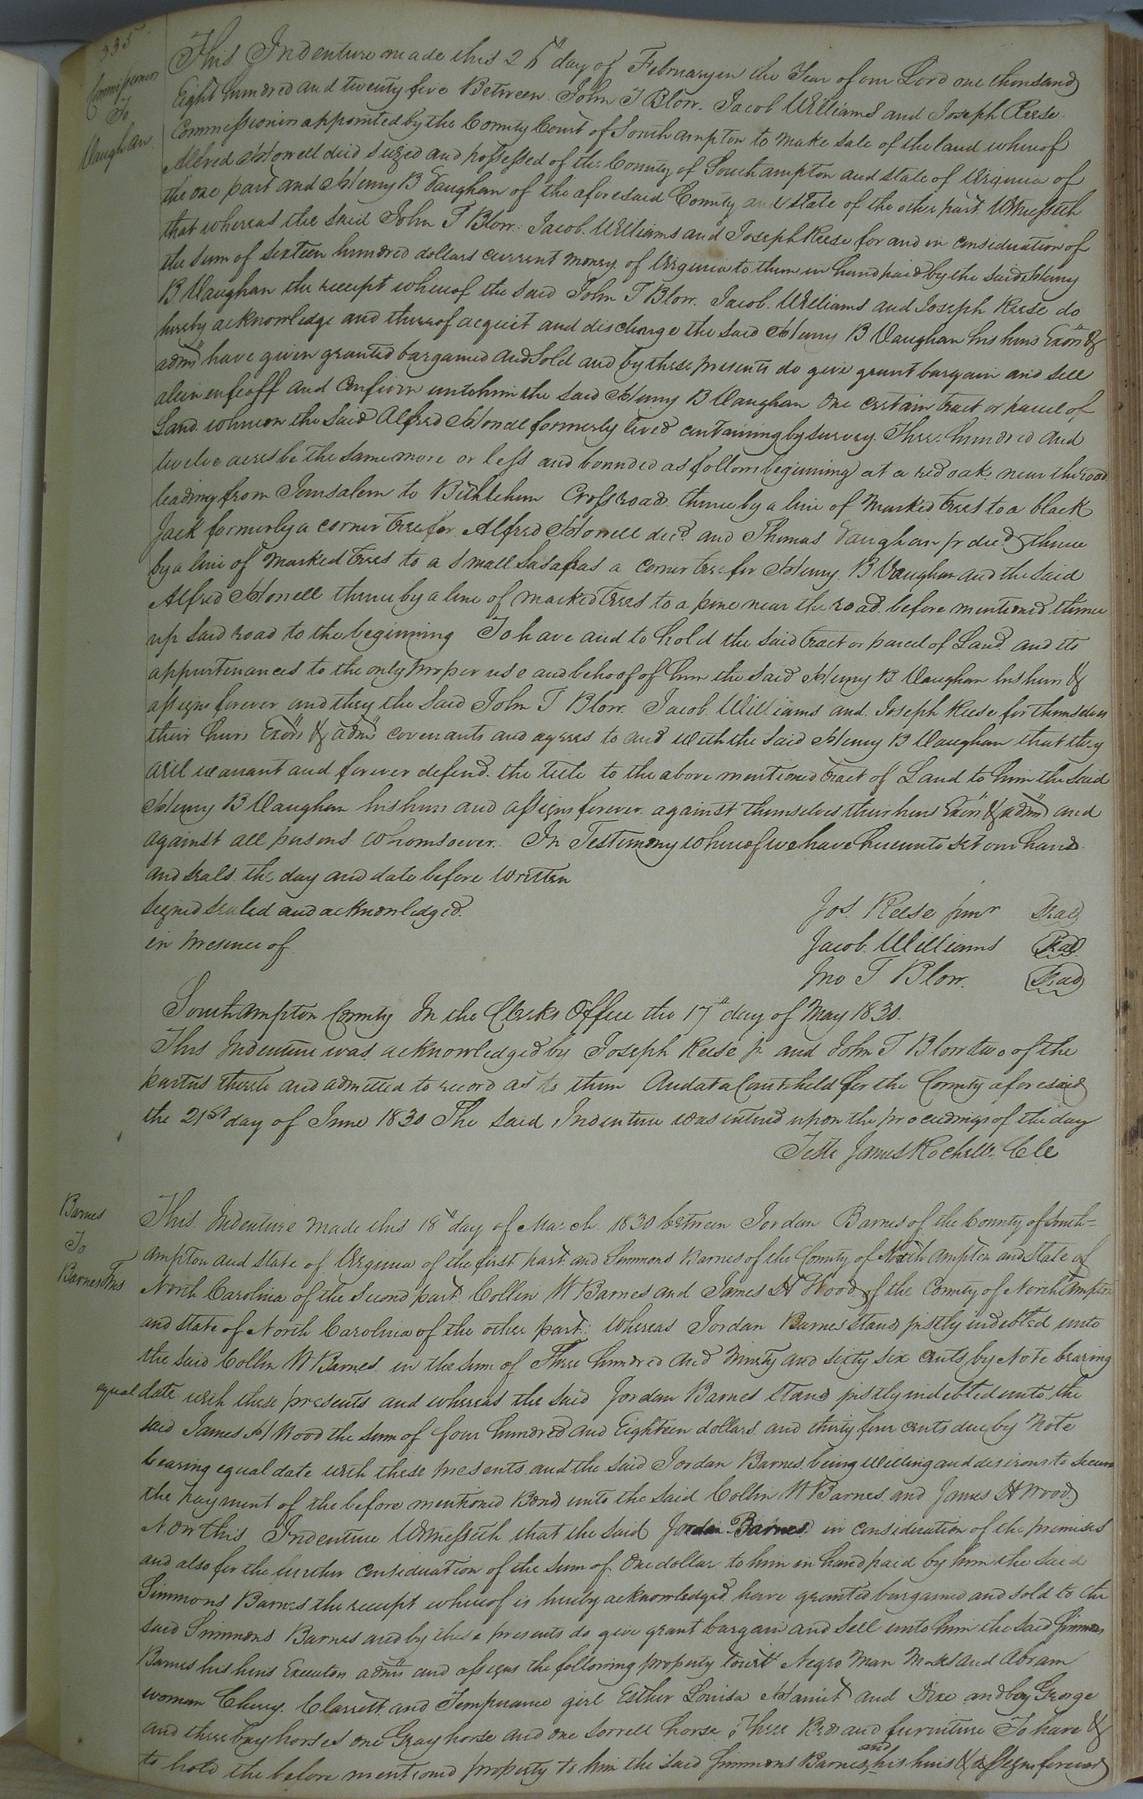 335
Commissioners
To
Vaughan
This Indenture made this 26th day of February in the Year of our Lord one thousand
Eight hundred and twenty five Between John T Blow. Jacob Williams and Joseph Reese
Commissioners appointed by the County Court of Southampton to make sale of the land whereof
Alfred Howell died siezed and possessed of the County of Southampton and state of Virginia of
the one part and Henry B Vaughan of the aforesaid County and state of the other part Witnesseth
that whereas the said John T Blow. Jacob Williams and Joseph Reese for and in consideration of
the sum of sixteen hundred dollars current money of Virginia to them in hand paid by the said Henry
B Vaughan the receipt whereof the said John T Blow. Jacob Williams and Joseph Reese do
hereby acknowledge and thereof acquit and discharge the said Henry B Vaughan his heirs Exors &
adms have given granted bargained and sold and by these presents do give grant bargain and sell
alien enfeoff and confirm unto him the said Henry B Vaughan one certain tract or parcel of
Land whereon the said Alfred Howell formerly lived containing by survey Three hundred and
twelve acres be the same more or less and bounded as follows beginning at a red oak near the road
leading from Jerusalem to Bethlehem Cross road thence by a line of marked trees to a black
Jack formerly a corner tree for Alfred Howell decd and Thomas Vaughan jr decd thence
by a line of marked trees to a small sasafras a corner tree for Henry B Vaughan and the said
Alfred Howell thence by a line of marked trees to a pine near the road before mentioned thence
up said road to the beginning To have and to hold the said tract or parcel of Land and its
appurtinances to the only proper use and behoof of him the said Henry B Vaughan his heirs &
assigns forever and they the said John T Blow. Jacob Williams and Joseph Reese for themselves
their heirs Exors & adms covenants and agrees to and with the said Henry B Vaughan that they
will warrant and forever defend the title to the above mentioned tract of Land to him the said
Henry B Vaughan his heirs and assigns forever against themselves their heirs Exors & adms and
against all persons whomsoever. In Testimony whereof we have hereunto set our hands
and seals the day and date before written
signed sealed and acknowledged
in presence of
Jos. Reese junr Seal
Jacob Williams Seal
Jno T Blow. Seal
Southampton County In the Clerks Office the 17th day of May 1830.
This Indenture was acknowledged by Joseph Reese jr and John T Blow two of the
parties thereto and admitted to record as to them And at a Court held for the County aforesaid
the 21st day of June 1830 The said Indenture was entered upon the proceedings of the day
Teste James Rochelle Clk
Barnes
To
Barnes &c
This Indenture made this 18th day of March 1830 between Jordan Barnes of the County of South=
ampton and state of Virginia of the first part and Simmons Barnes of the County of North ampton and state of
North Carolina of the second part Collin W Barnes and James H Wood of the County of Northampton
and state of North Carolina of the other part: Whereas Jordan Barnes stands justly indebted unto
the said Collin W Barnes in the sum of Three hundred and ninety and sixty six cents by Note bearing
equal date with these presents and whereas the said Jordan Barnes stand justly indebted unto the
said James H Wood the sum of four hundred and Eighteen dollars and thirty four cents due by Note
bearing equal date with these presents and the said Jordan Barnes being willing and desirous to secure
the payment of the before mentioned Bond unto the said Collin W Barnes and James H Wood
Now this Indenture Witnesseth that the said Jordan Barnes in consideration of the premises
and also for the further consideration of the sum of One dollar to him in hand paid by him the said
Simmons Barnes the receipt whereof is hereby acknowledged have granted bargained and sold to the
said Simmons Barnes and by these presents do give grant bargain and sell unto him the said Simmons
Barnes his heirs Executors adms and assigns the following property towit Negro Man Moses and Abram
woman Cherry. Clarrett and Temperance girl Esther Louisa Harriet and Dixe and boy George
and three bay horses one Gray horse and one sorrell horse, Three Beds and furniture To have &
to hold the before mentioned property to him the said Simmons Barnes and his heirs & assigns forever